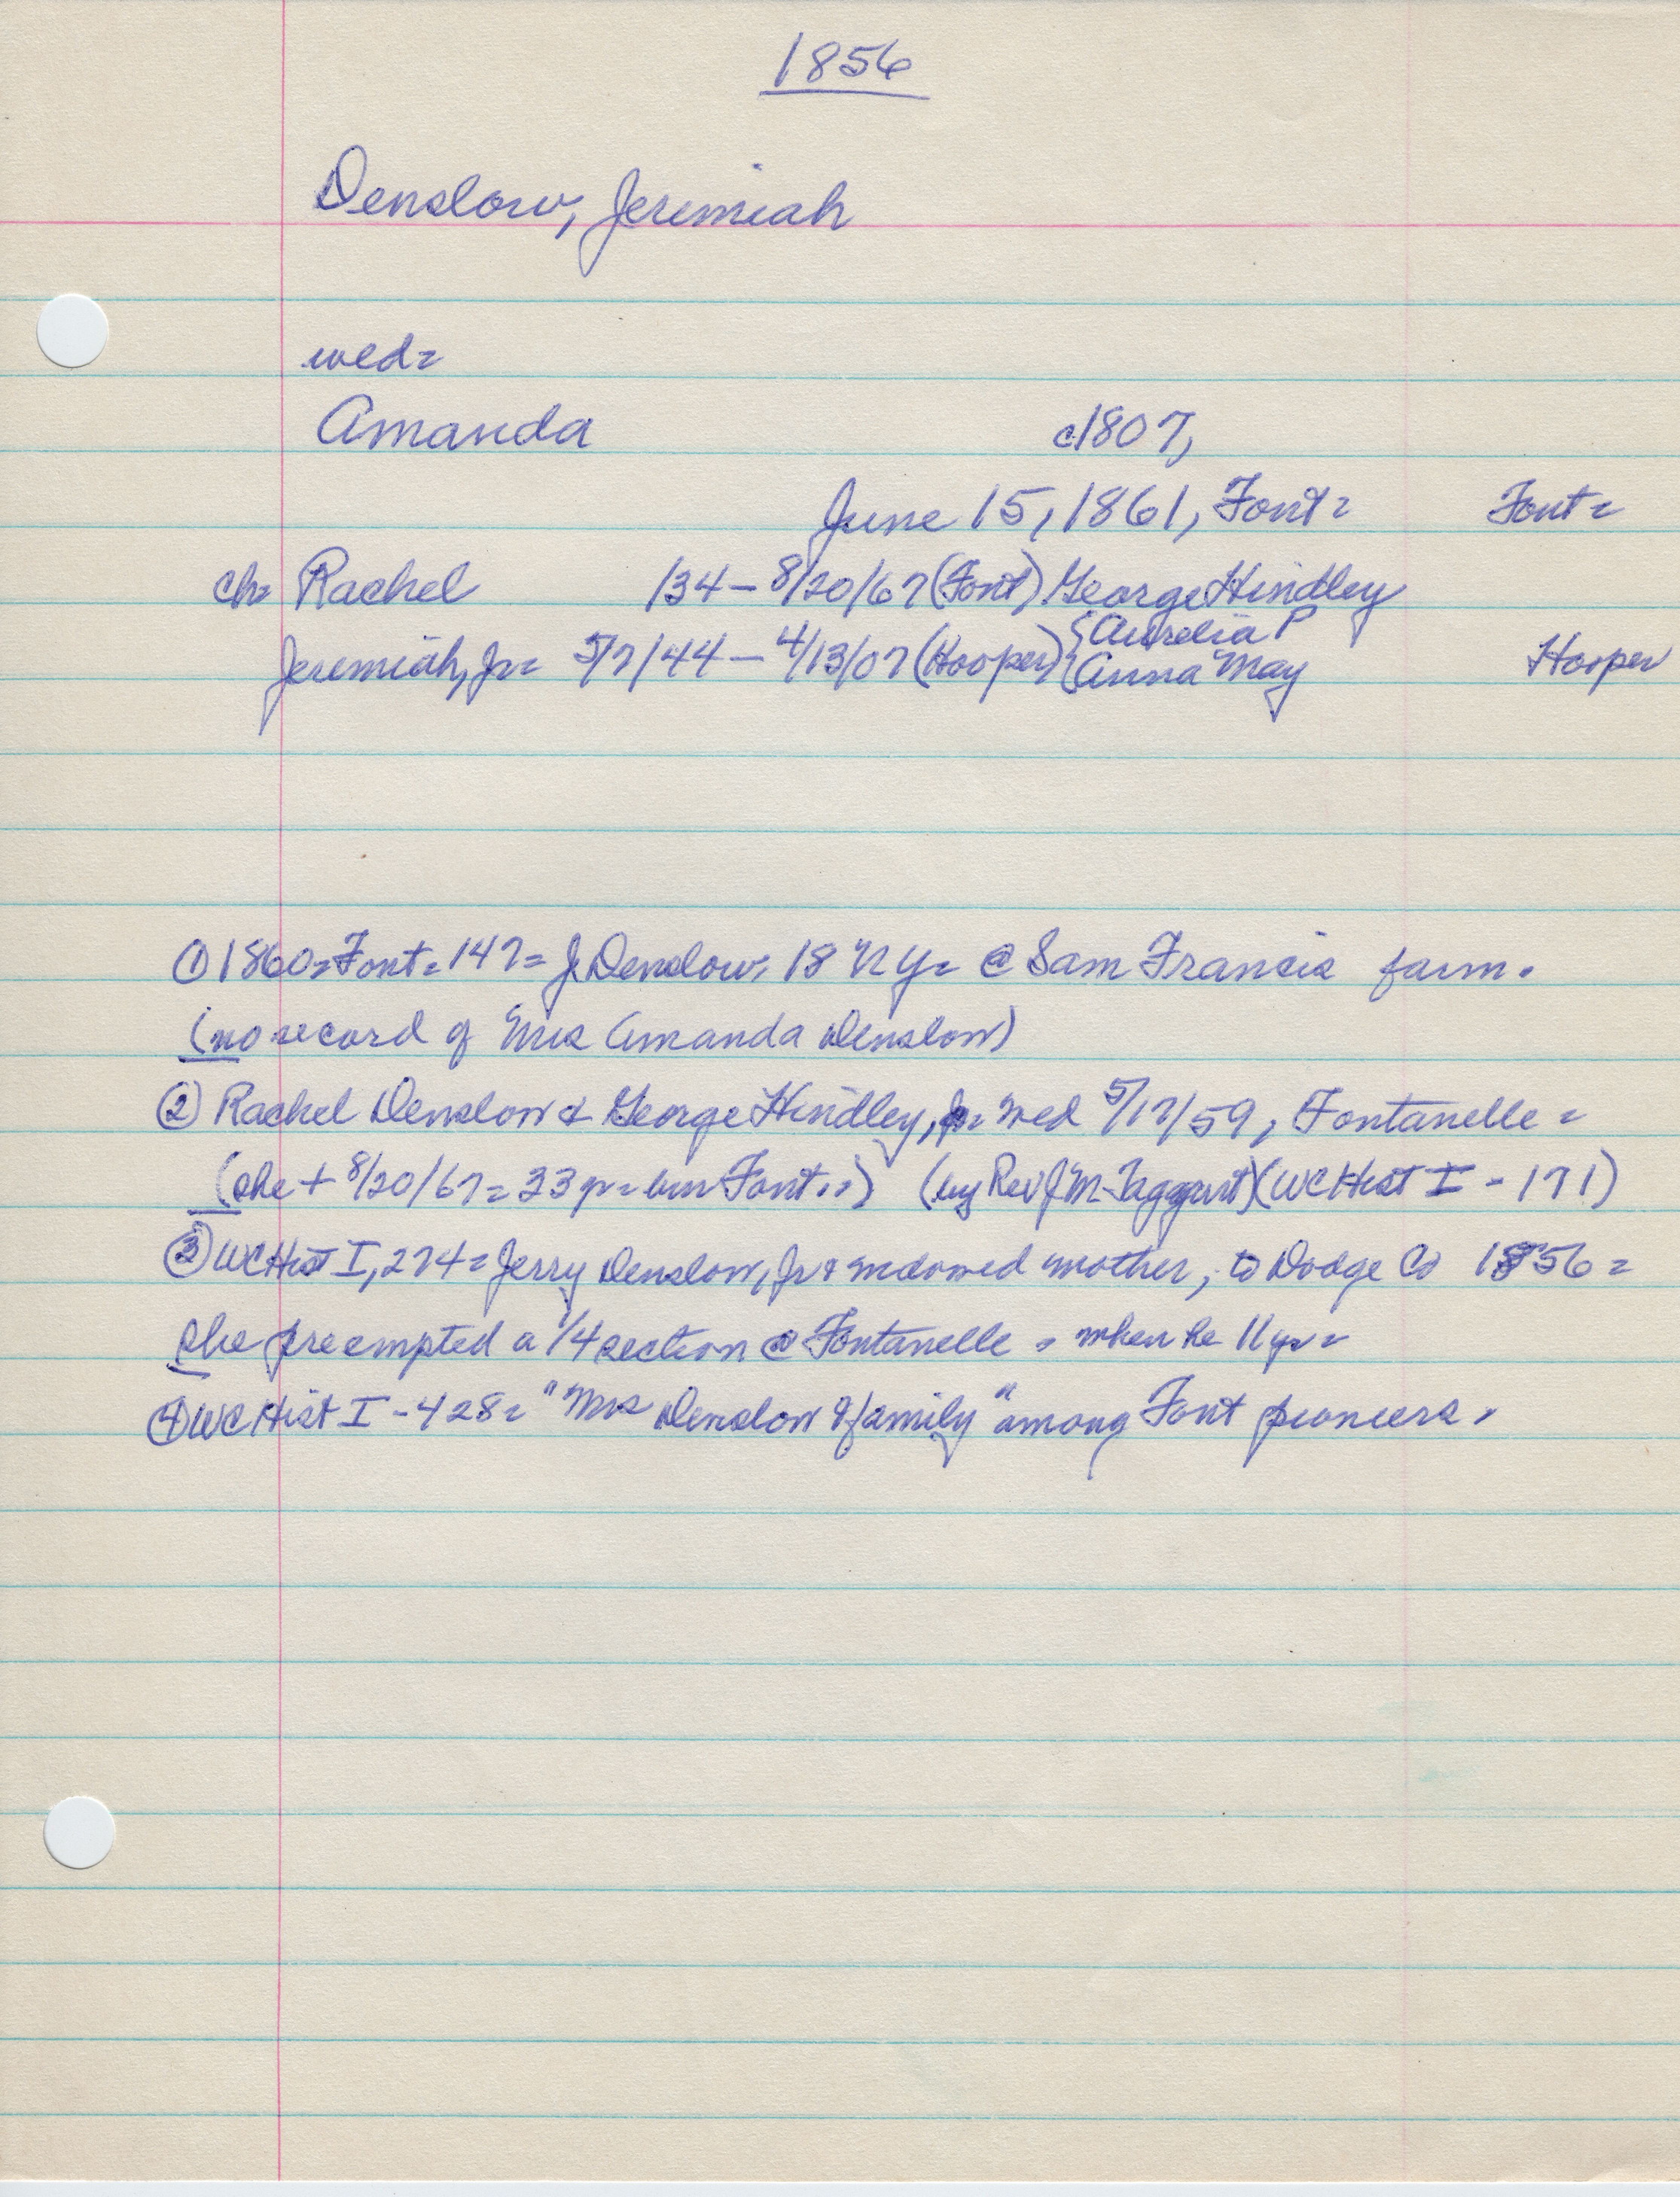 1856
Denslow, Jeremiah
wed=
Amanda c1807,
June 15, 1861, Font= Font=
ch= Rachel /34 - 8/20/67 (Font) George Hindley
{Aurelia P
Jeremiah, Jr= 5/7/44 - 4/13/07 (Hooper) {Anna May Hooper
① 1860= Font= 147= J. Denslow, 18 NY= @ Sam Francis farm.
(no record of Mrs Amanda Denslow)
② Rachel Denslow & George Hindley, wed 5/17/59, Fontanelle=
(she + 8/20/67= 33 yr= bur Font..) (by Rev J M Taggart) (WC Hist I - 171)
③ WC Hist I, 274= Jerry Denslow, Jr & widowed mother, to Dodge Co 1856=
she preempted a 1/4 section @ Fontanelle = when he 11 yr=
④ WC Hist I - 428= "Mrs Denslow & family" among Font pioneers.